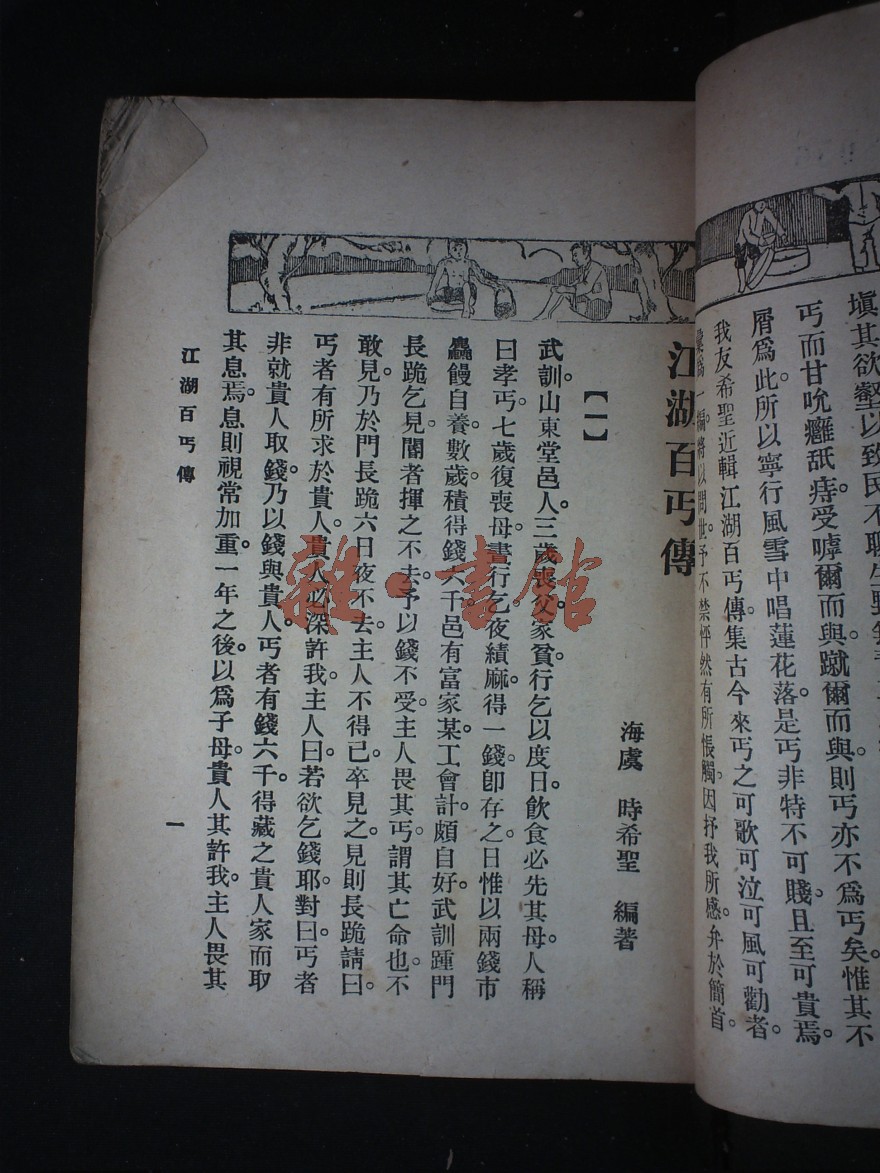 塡其欲壑以致民不聊生
丐而甘吮癰舐痔受嘑爾而與蹴爾而與則丐亦不爲丐矣惟其不
屑爲此所以寧行風雪中唱蓮花落是丐非特不可賤且至可貴焉。
我友希聖近輯江湖百丐傳集古今來丐之可歌可泣可風可勸者。
彙爲一編將以問世予不禁怦然有所悵觸。因抒我所感弁於簡首。
江湖百丐傳
海虞 時希聖 編著
【一】
武訓。山東堂邑人。三歲喪父。家貧。行乞以度日。飮食必先其母。人稱
曰孝丐。七歲復喪母。晝行乞。夜績麻。得一錢卽存之。日惟以兩錢市
麤饅自養。數歲積得錢六千。邑有富家某。工會計。頗自好。武訓踵門
長跪乞見。閽者揮之不去。予以錢不受。主人畏其丐。謂其亡命也。不
敢見。乃於門長跪六日夜不去。主人不得已。卒見之。見則長跪請曰。
丐者有所求於貴人。貴人必深許我。主人曰。若欲乞錢耶。對曰。丐者
非就貴人取錢。乃以錢與貴人。丐者有錢六千。得藏之貴人家而取
其息焉。息則視常加重。一年之後。以爲子母。貴人其許我。主人畏其
江湖百丐傳
一
雜·書館